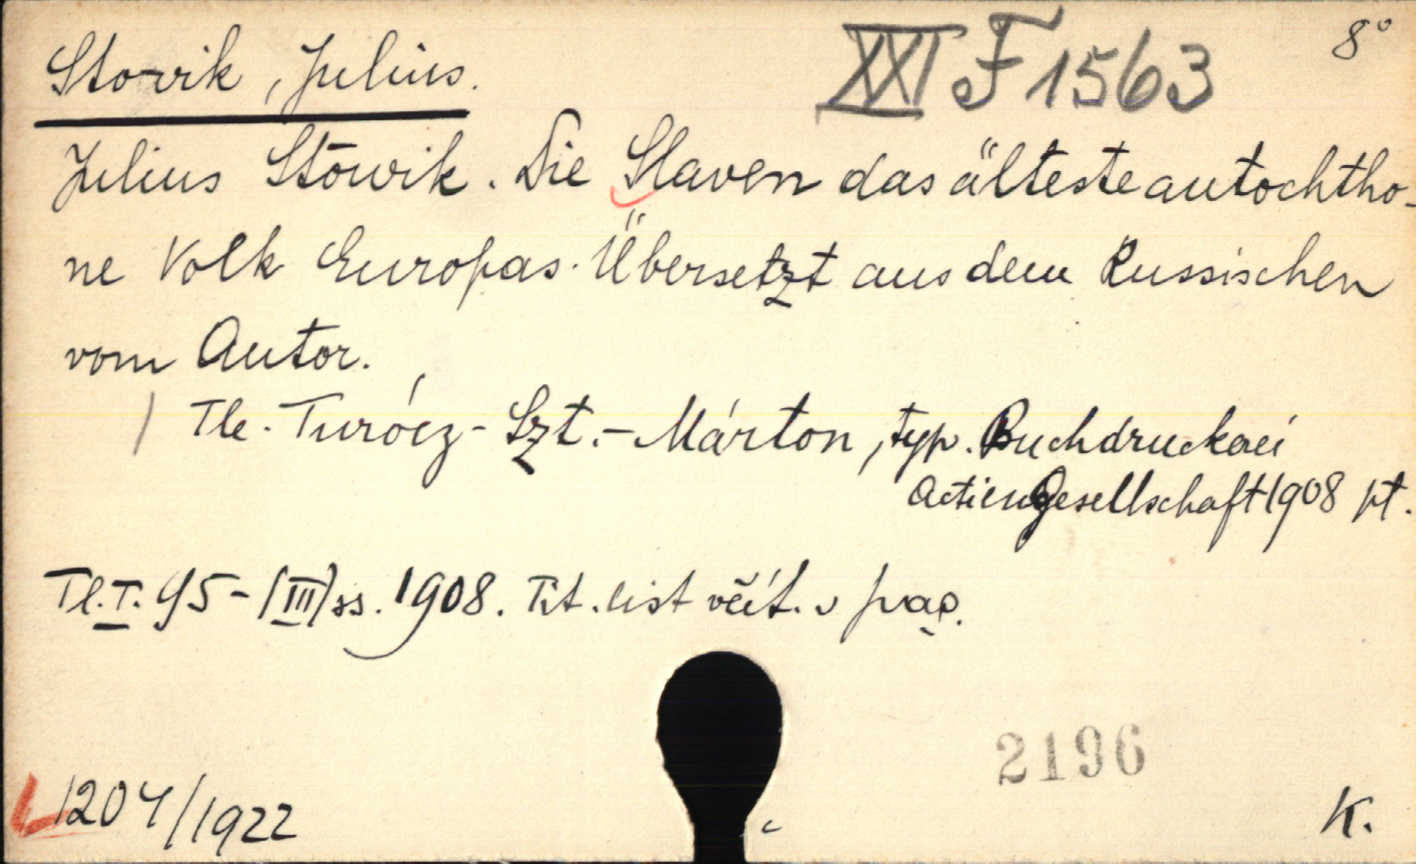 Stowik, Julius.
XXI F 1563
8°
Julius Stōwik. Die Slaven das älteste autochtho-
ne Volk Europas. Übersetzt aus dem Russischen
vom Autor.
Tle. Turócz-Szt.-Márton, typ. Buchdruckerei
Actiengesellschaft 1908 pt.
Tl. T. 95-(III) ss. 1908. Tit. list včít. v pag.
2196
1204/1922
K.